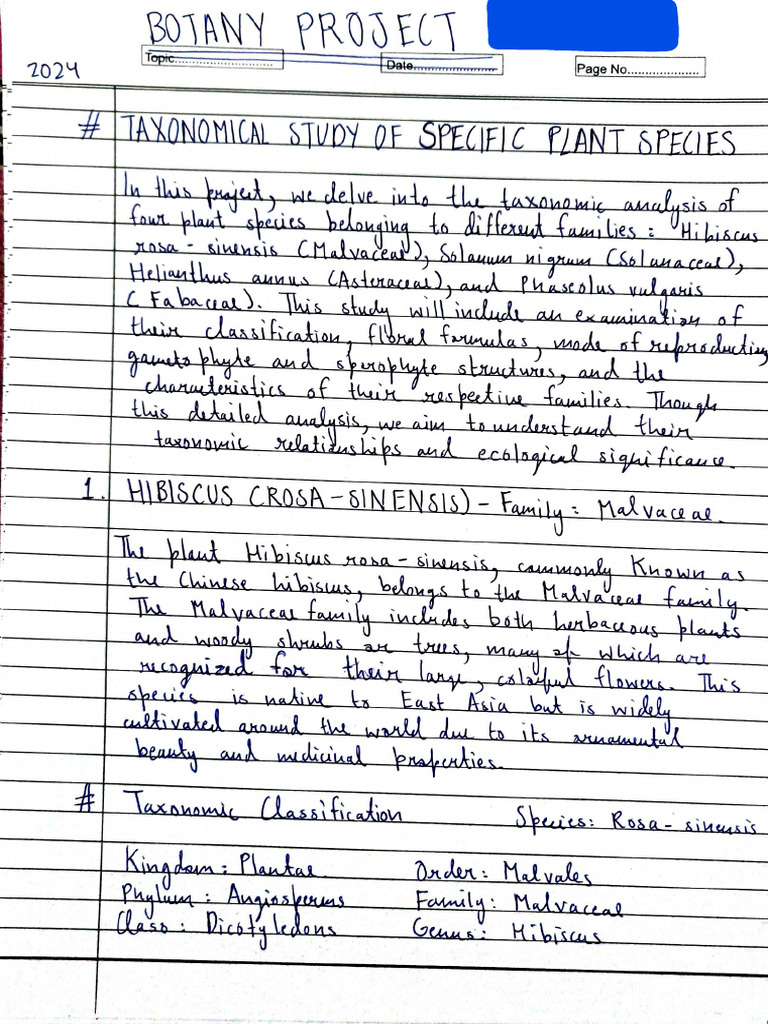 BOTANY PROJECT
Topic.............................. Date........................... Page No......................
2024
# TAXONOMICAL STUDY OF SPECIFIC PLANT SPECIES
In this project, we delve into the taxonomic analysis of
four plant species belonging to different families : Hibiscus
rosa - sinensis (Malvaceae), Solanum nigrum (Solanaceae),
Helianthus annus (Asteraceae), and Phaseolus vulgaris
(Fabaceae). This study will include an examination of
their classification, floral formulas, mode of reproduction,
gametophyte and sporophyte structures, and the
characteristics of their respective families. Though
this detailed analysis, we aim to understand their
taxonomic relationships and ecological significance.
1. HIBISCUS (ROSA-SINENSIS) - Family : Malvaceae.
The plant Hibiscus rosa - sinensis, commonly Known as
the Chinese hibiscus, belongs to the Malvaceae family.
The Malvaceae family includes both herbaceous plants
and woody shrubs or trees, many of which are
recognized for their large, colorful flowers. This
species is native to East Asia but is widely
cultivated around the world due to its ornamental
beauty and medicinal properties.
# Taxonomic Classification Species: Rosa - sinensis
Kingdom : Plantae Order : Malvales
Phylum : Angiosperms Family : Malvaceae
Class : Dicotyledons Genus : Hibiscus